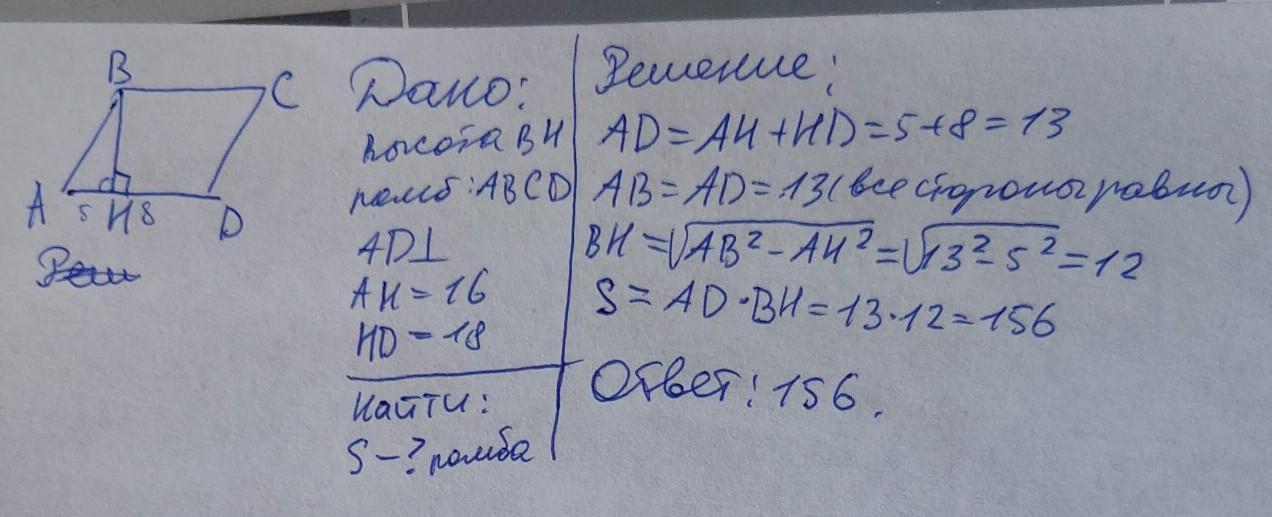 B
C
A
5 H 8
D
Дано:
высота BH
ромб: ABCD
AD⊥
AH = 16
HD = 18
Найти:
S - ? ромба
Решение:
AD = AH + HD = 5 + 8 = 13
AB = AD = 13 (все стороны равны)
BH = √AB² - AH² = √13² - 5² = 12
S = AD · BH = 13 · 12 = 156
Ответ: 156.